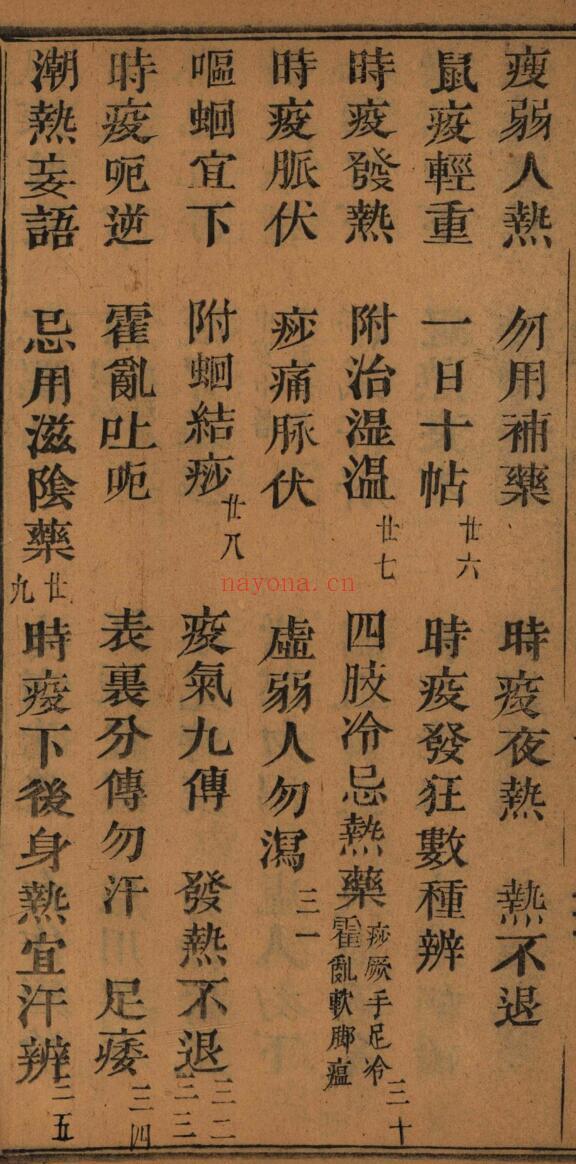 瘦弱人熱 勿用補藥 時疫夜熱 熱不退
鼠疫輕重 一日十帖 廿六 時疫發狂數種辨
時疫發熱 附治湿温 廿七 四肢冷忌熱藥 痧厥手足冷 霍亂軟脚瘟 三十
時疫脈伏 痧痛脉伏 虛弱人勿瀉 三一
嘔蛔宜下 附蛔結痧 廿八 疫氣九傳 發熱不退 三二 三三
時疫呃逆 霍亂吐呃 表裏分傳勿汗 足痿 三四
潮熱妄語 忌用滋陰藥 廿九 時疫下後身熱宜汗辨 三五
nayona.cn